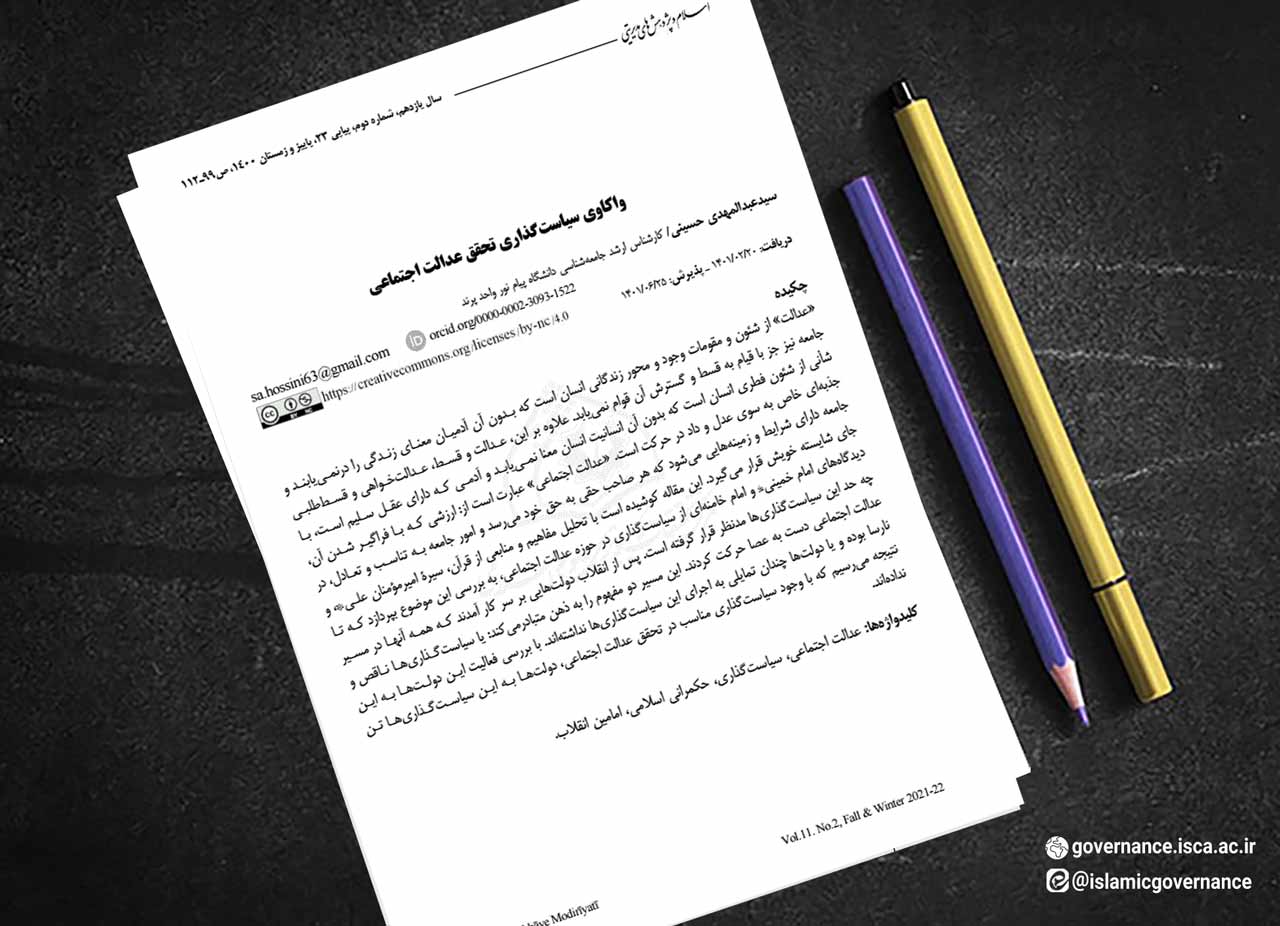 اسلام و پژوهش‌های مدیریتی
سال یازدهم، شماره دوم، پیاپی ۲۳، پاییز و زمستان ۱٤۰۰، ص۹۹ـ۱۱۲
واکاوی سیاست‌گذاری تحقق عدالت اجتماعی
سیدعبدالمهدی حسینی/ کارشناس ارشد جامعه‌شناسی دانشگاه پیام نور واحد پرند
sa.hossini63@gmail.com
orcid.org/0000-0002-3093-1522
https://creativecommons.org/licenses/by-nc/4.0
دریافت: ۱۴۰۱/۰۲/۲۰ ـ پذیرش: ۱۴۰۱/۰۶/۲۵
چکیده
«عدالت» از شئون و مقومات وجود و محور زندگانی انسان است که بدون آن آدمیان معنای زندگی را درنمی‌یابند و
جامعه نیز جز با قیام به قسط و گسترش آن قوام نمی‌یابد. علاوه بر این، عدالت و قسط، عدالت‌خواهی و قسط‌طلبی
شأنی از شئون فطری انسان است که بدون آن انسانیت انسان معنا نمی‌یابد و آدمی که دارای عقل سلیم است، با
جذبه‌ای خاص به سوی عدل و داد در حرکت است. «عدالت اجتماعی» عبارت است از: ارزشی که با فراگیر شدن آن،
جامعه دارای شرایط و زمینه‌هایی می‌شود که هر صاحب حقی به حق خود می‌رسد و امور جامعه به تناسب و تعادل، در
جای شایسته خویش قرار می‌گیرد. این مقاله کوشیده است با تحلیل مفاهیم و منابعی از قرآن، سیرۀ امیرمؤمنان علی و
دیدگاه‌های امام خمینی و امام خامنه‌ای از سیاست‌گذاری در حوزه عدالت اجتماعی، به بررسی این موضوع بپردازد که تا
چه حد این سیاست‌گذاری‌ها مدنظر قرار گرفته است. پس از انقلاب دولت‌هایی بر سر کار آمدند که همه آنها در مسیر
عدالت اجتماعی دست به عصا حرکت کردند. این مسیر دو مفهوم را به ذهن متبادر می‌کند: یا سیاست‌گذاری‌ها ناقص و
نارسا بوده و یا دولت‌ها چندان تمایلی به اجرای این سیاست‌گذاری‌ها نداشته‌اند. با بررسی فعالیت این دولت‌ها به این
نتیجه می‌رسیم که با وجود سیاست‌گذاری مناسب در تحقق عدالت اجتماعی، دولت‌ها به این سیاست‌گذاری‌ها تن
نداده‌اند.
کلیدواژه‌ها: عدالت اجتماعی، سیاست‌گذاری، حکمرانی اسلامی، امامین انقلاب.
Vol.11. No.2, Fall & Winter 2021-22
Modiriyatī
governance.isca.ac.ir
@islamicgovernance